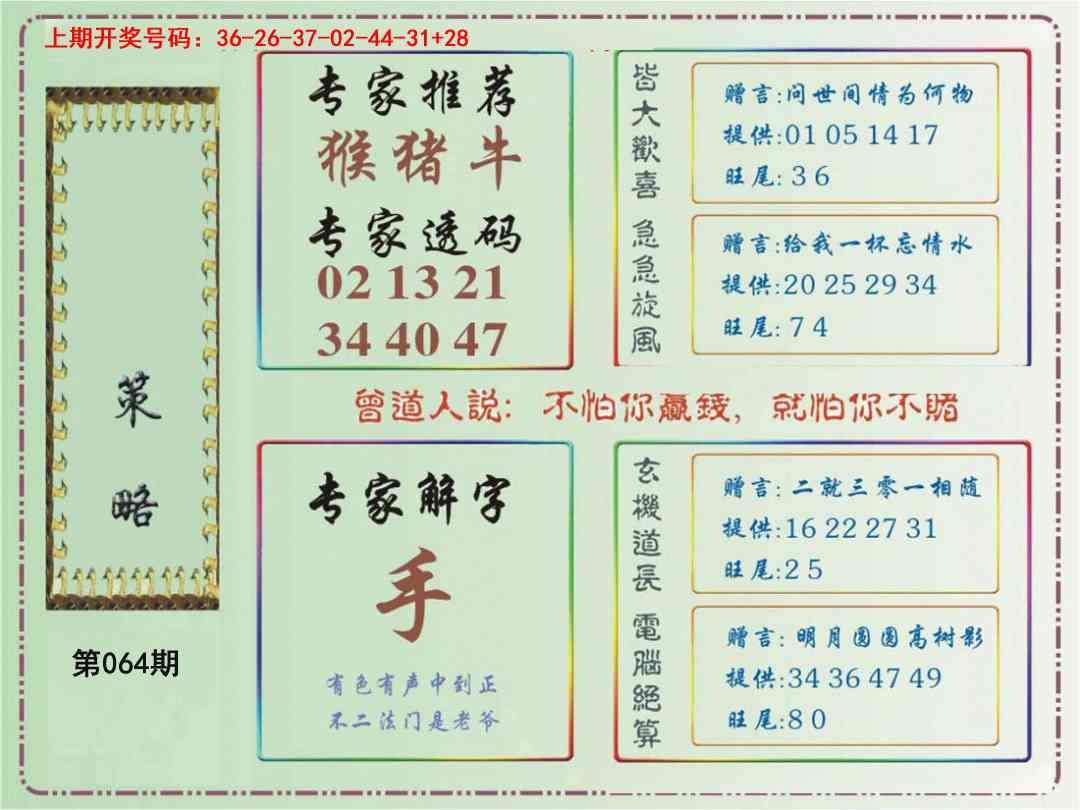 上期开奖号码：36-26-37-02-44-31+28
策
略
第064期
专家推荐
猴猪牛
专家透码
02 13 21
34 40 47
皆大歡喜
赠言:问世间情为何物
提供:01 05 14 17
旺尾: 3 6
急急旋風
赠言:给我一杯忘情水
提供:20 25 29 34
旺尾: 7 4
曾道人説: 不怕你贏錢, 就怕你不賭
专家解字
手
有色有声中到正
不二法门是老爷
玄機道長
赠言: 二就三零一相随
提供:16 22 27 31
旺尾:2 5
電腦絕算
赠言: 明月圆圆高树影
提供:34 36 47 49
旺尾:8 0